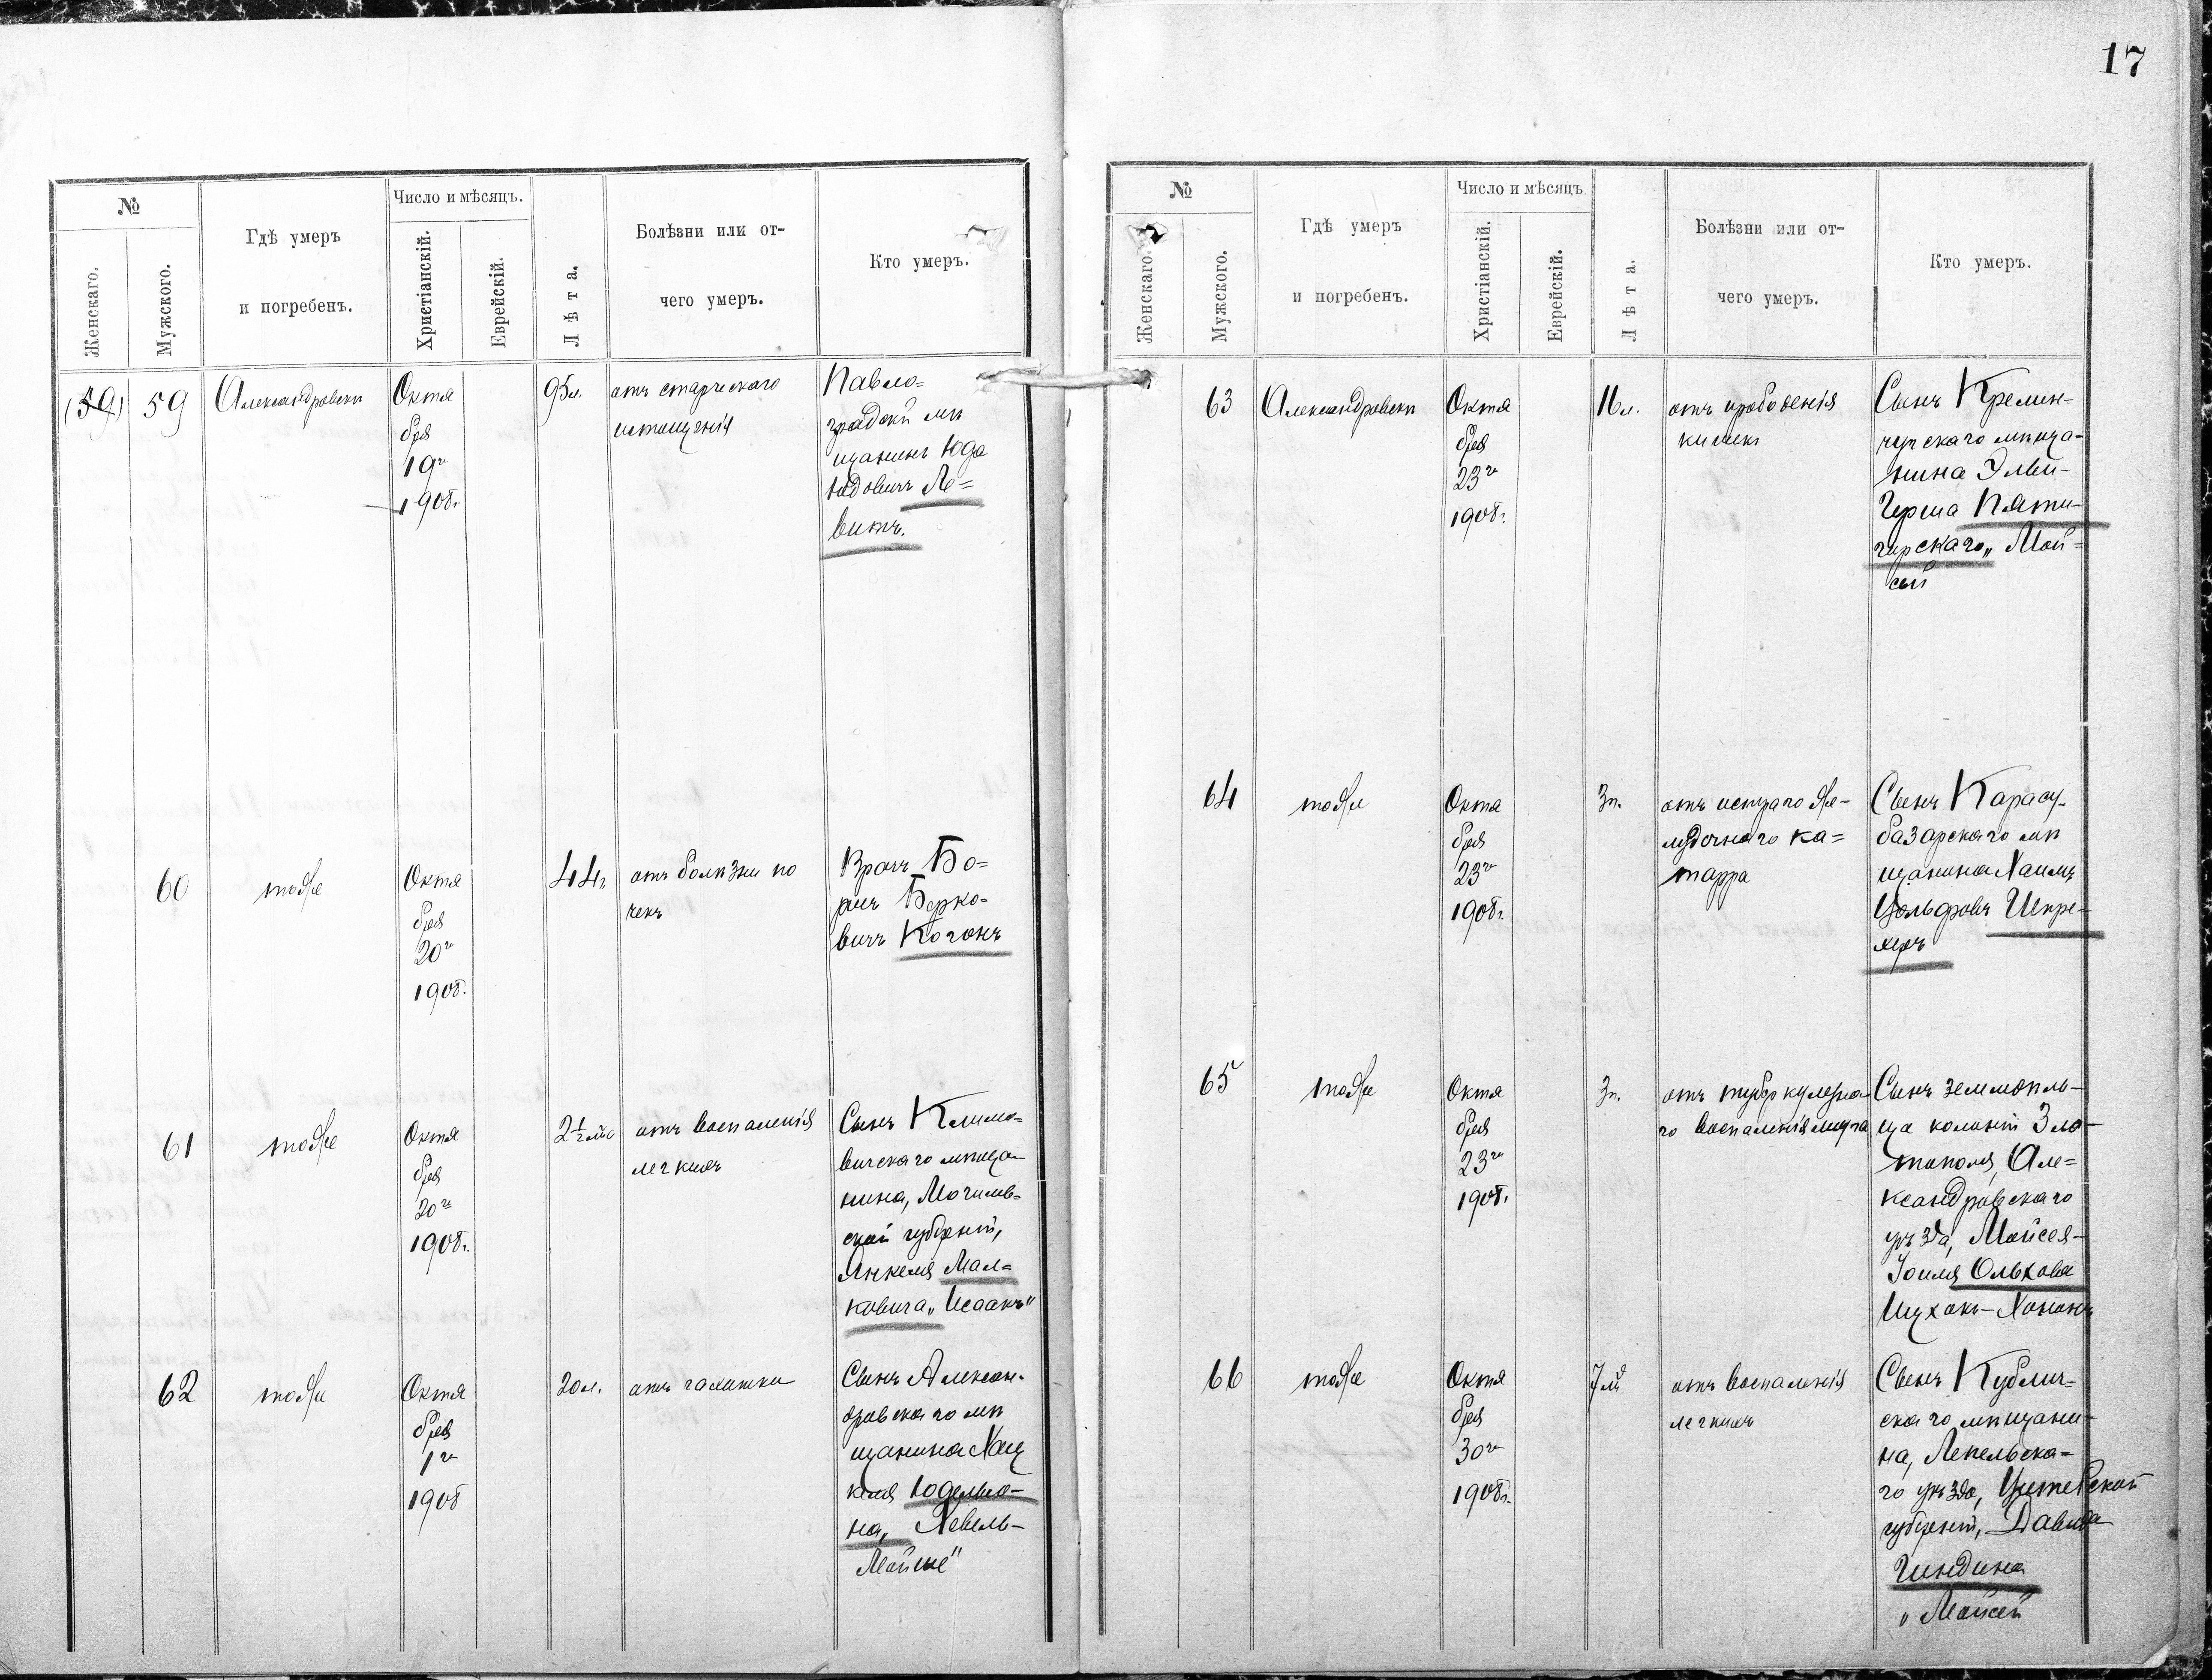 17
№
Женскаго.
Мужского.
Гдѣ умеръ
и погребенъ.
Число и мѣсяцъ.
Христіанскій.
Еврейскій.
Лѣта.
Болѣзни или от-
чего умеръ.
Кто умеръ.
(59)
59
Александровскъ
Октя
бря
19го
1908г.
95л.
отъ старческаго
истощенія
Павло=
градскій мѣ
щанинъ Юда
Юдовичъ Ле=
витъ.
60
тоже
Октя
бря
20го
1908г.
44г.
отъ болѣзни по
чекъ
Врачъ Бо=
рисъ Берко-
вичъ Коганъ
61
тоже
Октя
бря
20го
1908г.
2½
отъ воспаленія
легкихъ
Сынъ Климо-
вичскаго мѣща-
нина, Могилев=
ской губерніи,
Янкеля Мал=
ковича „Исаакъ"
62
тоже
Октя
бря
1го
1908
20л.
отъ чахотки
Сынъ Алексан-
дровскаго мѣ
щанина Хац
келя Юдельмо-
на, Хевель-
Мойше"
№
Женскаго.
Мужского.
Гдѣ умеръ
и погребенъ.
Число и мѣсяцъ
Христіанскій.
Еврейскій.
Лѣта.
Болѣзни или от-
чего умеръ.
Кто умеръ.
63
Александровскъ
Октя
бря
23го
1908г.
16л.
отъ прободенія
кишекъ
Сынъ Кремен-
чугскаго мѣща-
нина
Герша Пяти-
горскаго „Мои=
сей
64
тоже
Октя
бря
23го
1908г.
3г.
отъ остраго же-
лудочнаго ка=
тарра
Сынъ Карасу-
базарскаго мѣ
щанина Хаимъ
Вольфовъ Шпре-
херъ
65
тоже
Октя
бря
23го
1908г.
3г.
отъ туберкулезна
го воспаленія мозга
Сынъ земледѣль-
ца колоніи Зла-
тополя, Але=
ксандровскаго
уѣзда, Мойсея-
Іоиля Ольхова
Ицхокъ-Хононъ
66
тоже
Октя
бря
30го
1908г.
7
отъ воспаленія
легкихъ
Сынъ Кублич=
скаго мѣщани-
на, Лепельска-
го уѣзда, Витебской
губерніи, Давида
Гиндина
„Мойсей